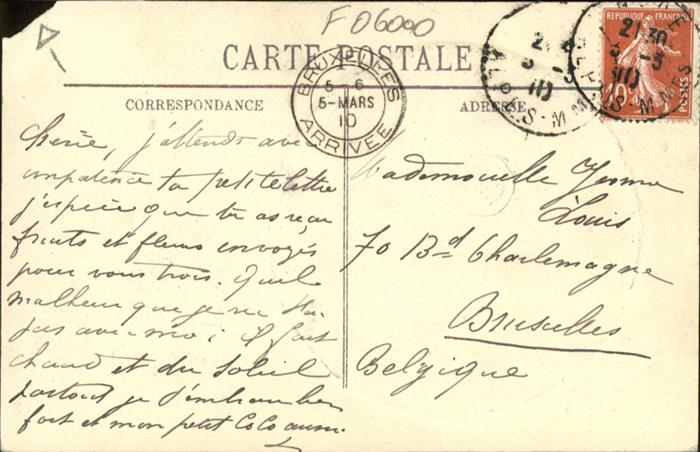 F 06000
CARTE POSTALE
CORRESPONDANCE
ADRESSE
BRUXELLES
5-6
5-MARS
10
ARRIVÉE
21 30
3-3
10
ALPES-MMES
REPUBLIQUE FRANÇAISE
10c
POSTES
Chérie, j'attends avec
impatience ta petite lettre
j'espère que tu as reçu
fruits et fleurs envoyés
pour vous trois. Quel
malheur que je ne t'ai
pas avec moi il fait
chaud et du soleil
partout je t'embrasse bien
fort et mon petit CoCo aussi.
Mademoiselle Yvonne
Louis
70 Bd Charlemagne
Bruxelles
Belgique